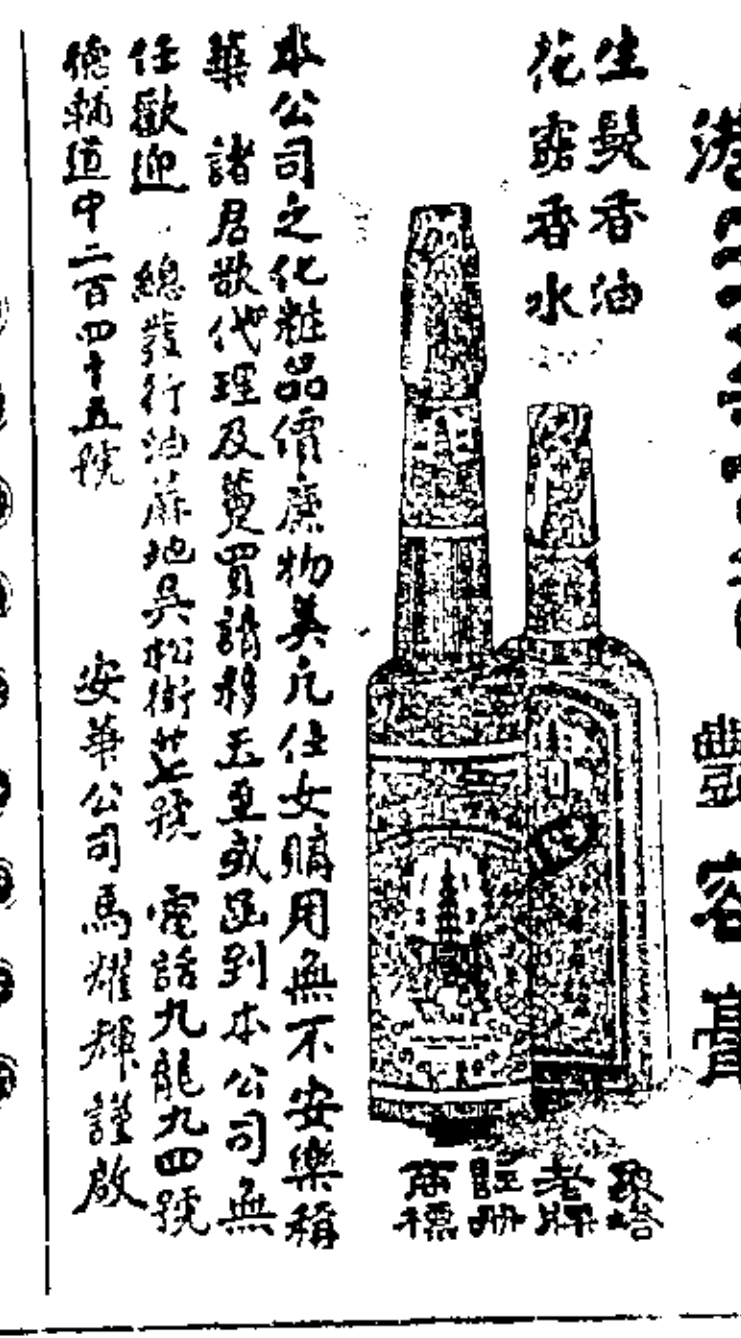 豔容膏
生髮香油
花露香水
老牌
註冊
商標
本公司之化粧品價廉物美凡仕女購用無不安樂稱
諸君欲代理及躉買請移玉至或函到本公司無
任歡迎 總發行油蔴地吳松街 號 電話九龍九四號
德輔道中二百四十五號 安華公司馬耀輝謹啟